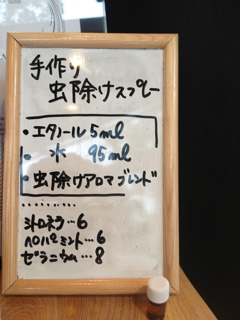 手作り
虫除けスプレー
・エタノール 5ml
・水 95ml
・虫除けアロマブレンド
.........
シトロネラ…6
ハロパミント…6
ゼラニウム…8